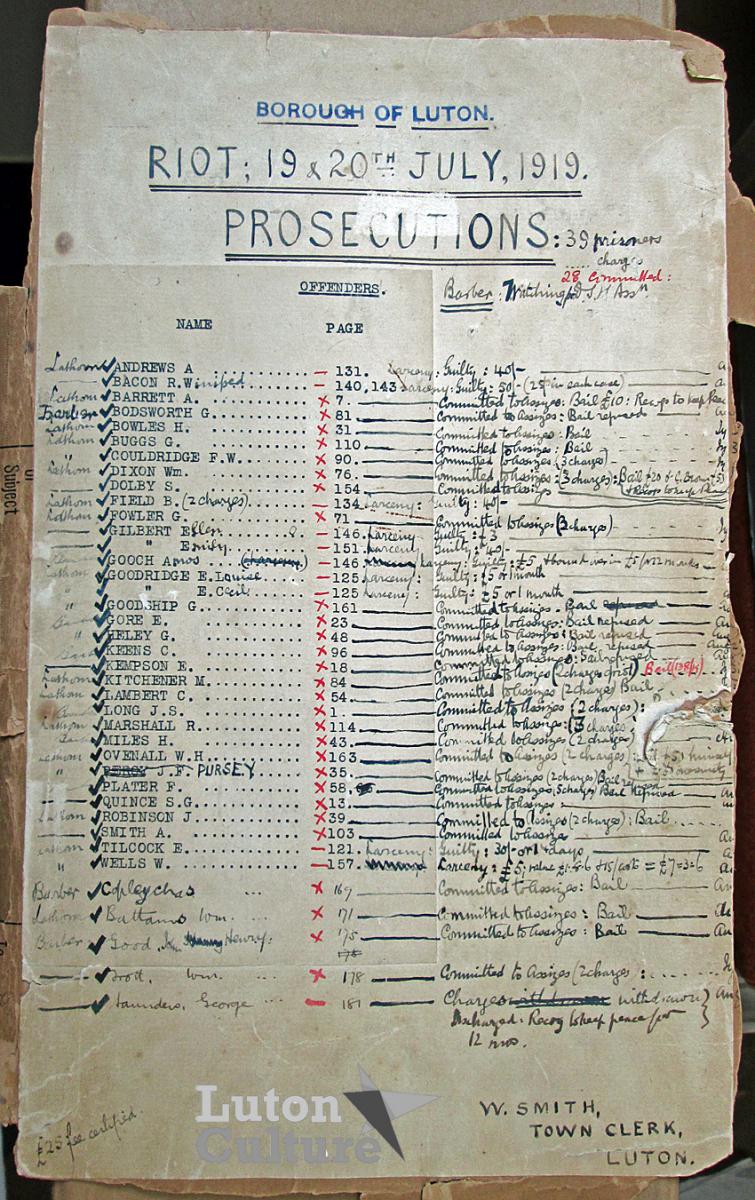 BOROUGH OF LUTON.
RIOT; 19 & 20TH JULY, 1919.
PROSECUTIONS: 39 prisoners
charges
28 Committed:
OFFENDERS.
Barber: Watching
NAME PAGE
Lathom ANDREWS A - 131. Larceny: Guilty: 40/-
BACON R.Winifred - 140,143 Larceny: Guilty: 50/- (25/- in each case)
Lathom BARRETT A. x 7. Committed to Assizes: Bail £10: Recogs to keep Peace
Barber BODSWORTH G. x 81. Committed to Assizes: Bail refused
Lathom BOWLES H. x 31 Committed to Assizes: Bail
Lathom BUGGS G. x 110 Committed to Assizes: Bail
" COULDRIDGE F.W. x 90. Committed to Assizes (3 charges)
Lathom DIXON Wm. x 76. Committed to Assizes: (3 charges): Bail £20
DOLBY S. x 154 Committed to Assizes
Lathom FIELD B. (2 charges) - 134 Larceny: Guilty: 40/-
Lathom FOWLER G. x 71 Committed to Assizes (3 charges)
GILBERT Ellen - 146. Larceny: Guilty: £3
" Emily. - 151. Larceny: Guilty: 40/-
GOOCH Amos (Larceny) - 146 Larceny: Guilty: £5 & bound over in £5 for 12 months
GOODRIDGE E.Louise - 125 Larceny: Guilty: £5 or 1 month
" E.Cecil - 125 Larceny: Guilty: £5 or 1 month
" GOODSHIP G. x 161 Committed to Assizes - Bail refused
GORE E. x 23 Committed to Assizes: Bail Refused
" HELEY G. x 48 Committed to Assizes: Bail refused
KEENS C. x 96 Committed to Assizes: Bail refused
KEMPSON E. x 18 Committed to Assizes: Bail refused
Lathom KITCHENER M. x 84 Committed to Assizes (2 charges of riot) Bail
Lathom LAMBERT C. x 54. Committed to Assizes (2 charges) Bail
LONG J.S. x 1. Committed to Assizes (2 charges):
Lathom MARSHALL R. x 114 Committed to Assizes: (3 charges)
MILES H. x 43. Committed to Assizes (2 charges)
Lathom OVENALL W.H x 163 Committed to Assizes (2 charges):
" PERCY J.F. PURSEY x 35. Committed to Assizes (2 charges) Bail
PLATER F. x 58. Committed to Assizes, 5 charges) Bail Refused
QUINCE S.G. x 13. Committed to Assizes
Lathom ROBINSON J. x 39 Committed to Assizes (2 charges): Bail
SMITH A. x 103 Committed to Assizes
Lathom TILCOCK E. - 121. Larceny: Guilty: 30/- or 14 days
" WELLS W. - 157. Larceny: £5;
Barber Copley Chas x 169 Committed to Assizes: Bail
Lathom Battams Wm. x 171 Committed to Assizes: Bail
Barber Good, Henry: x 175 Committed to Assizes: Bail
178
Trott, Wm. x 178 Committed to Assizes (2 charges:
Saunders, George - 181 Charge withdrawn
Discharged: Recog to keep peace for
12 mos.
£25 fee certified.
Luton
Culture
W. SMITH,
TOWN CLERK,
LUTON.
Subject